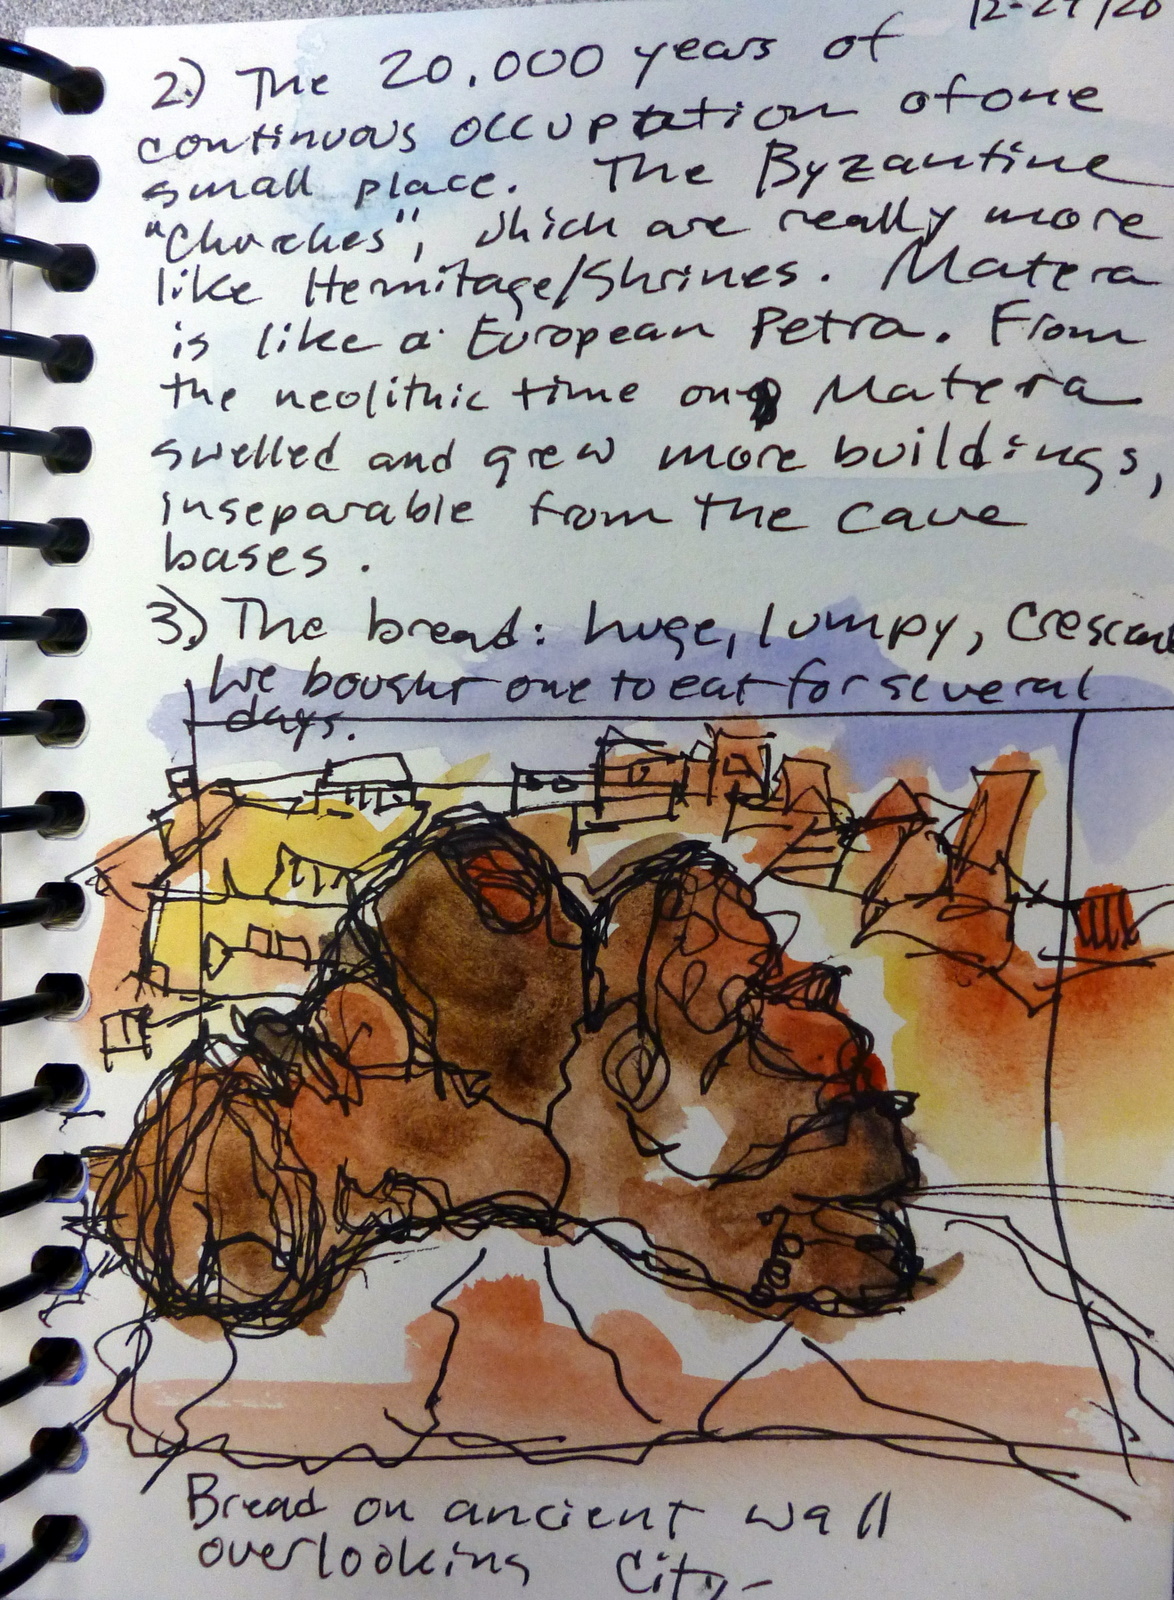 12-27/20
2.) The 20,000 years of
continuous occupation of one
small place. The Byzantine
"Churches", which are really more
like Hermitage/Shrines. Matera
is like a European Petra. From
the neolithic time on Matera
swelled and grew more buildings,
inseparable from the cave
bases.
3.) The bread: huge, lumpy, Crescent
We bought one to eat for several
days.
Bread on ancient wall
overlooking City-